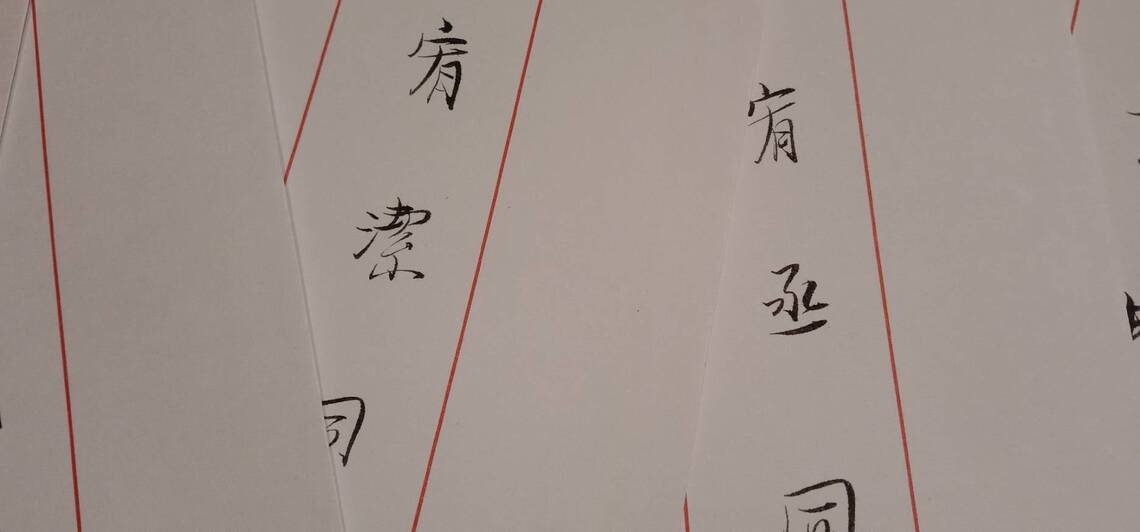 宥丞同
宥潔同